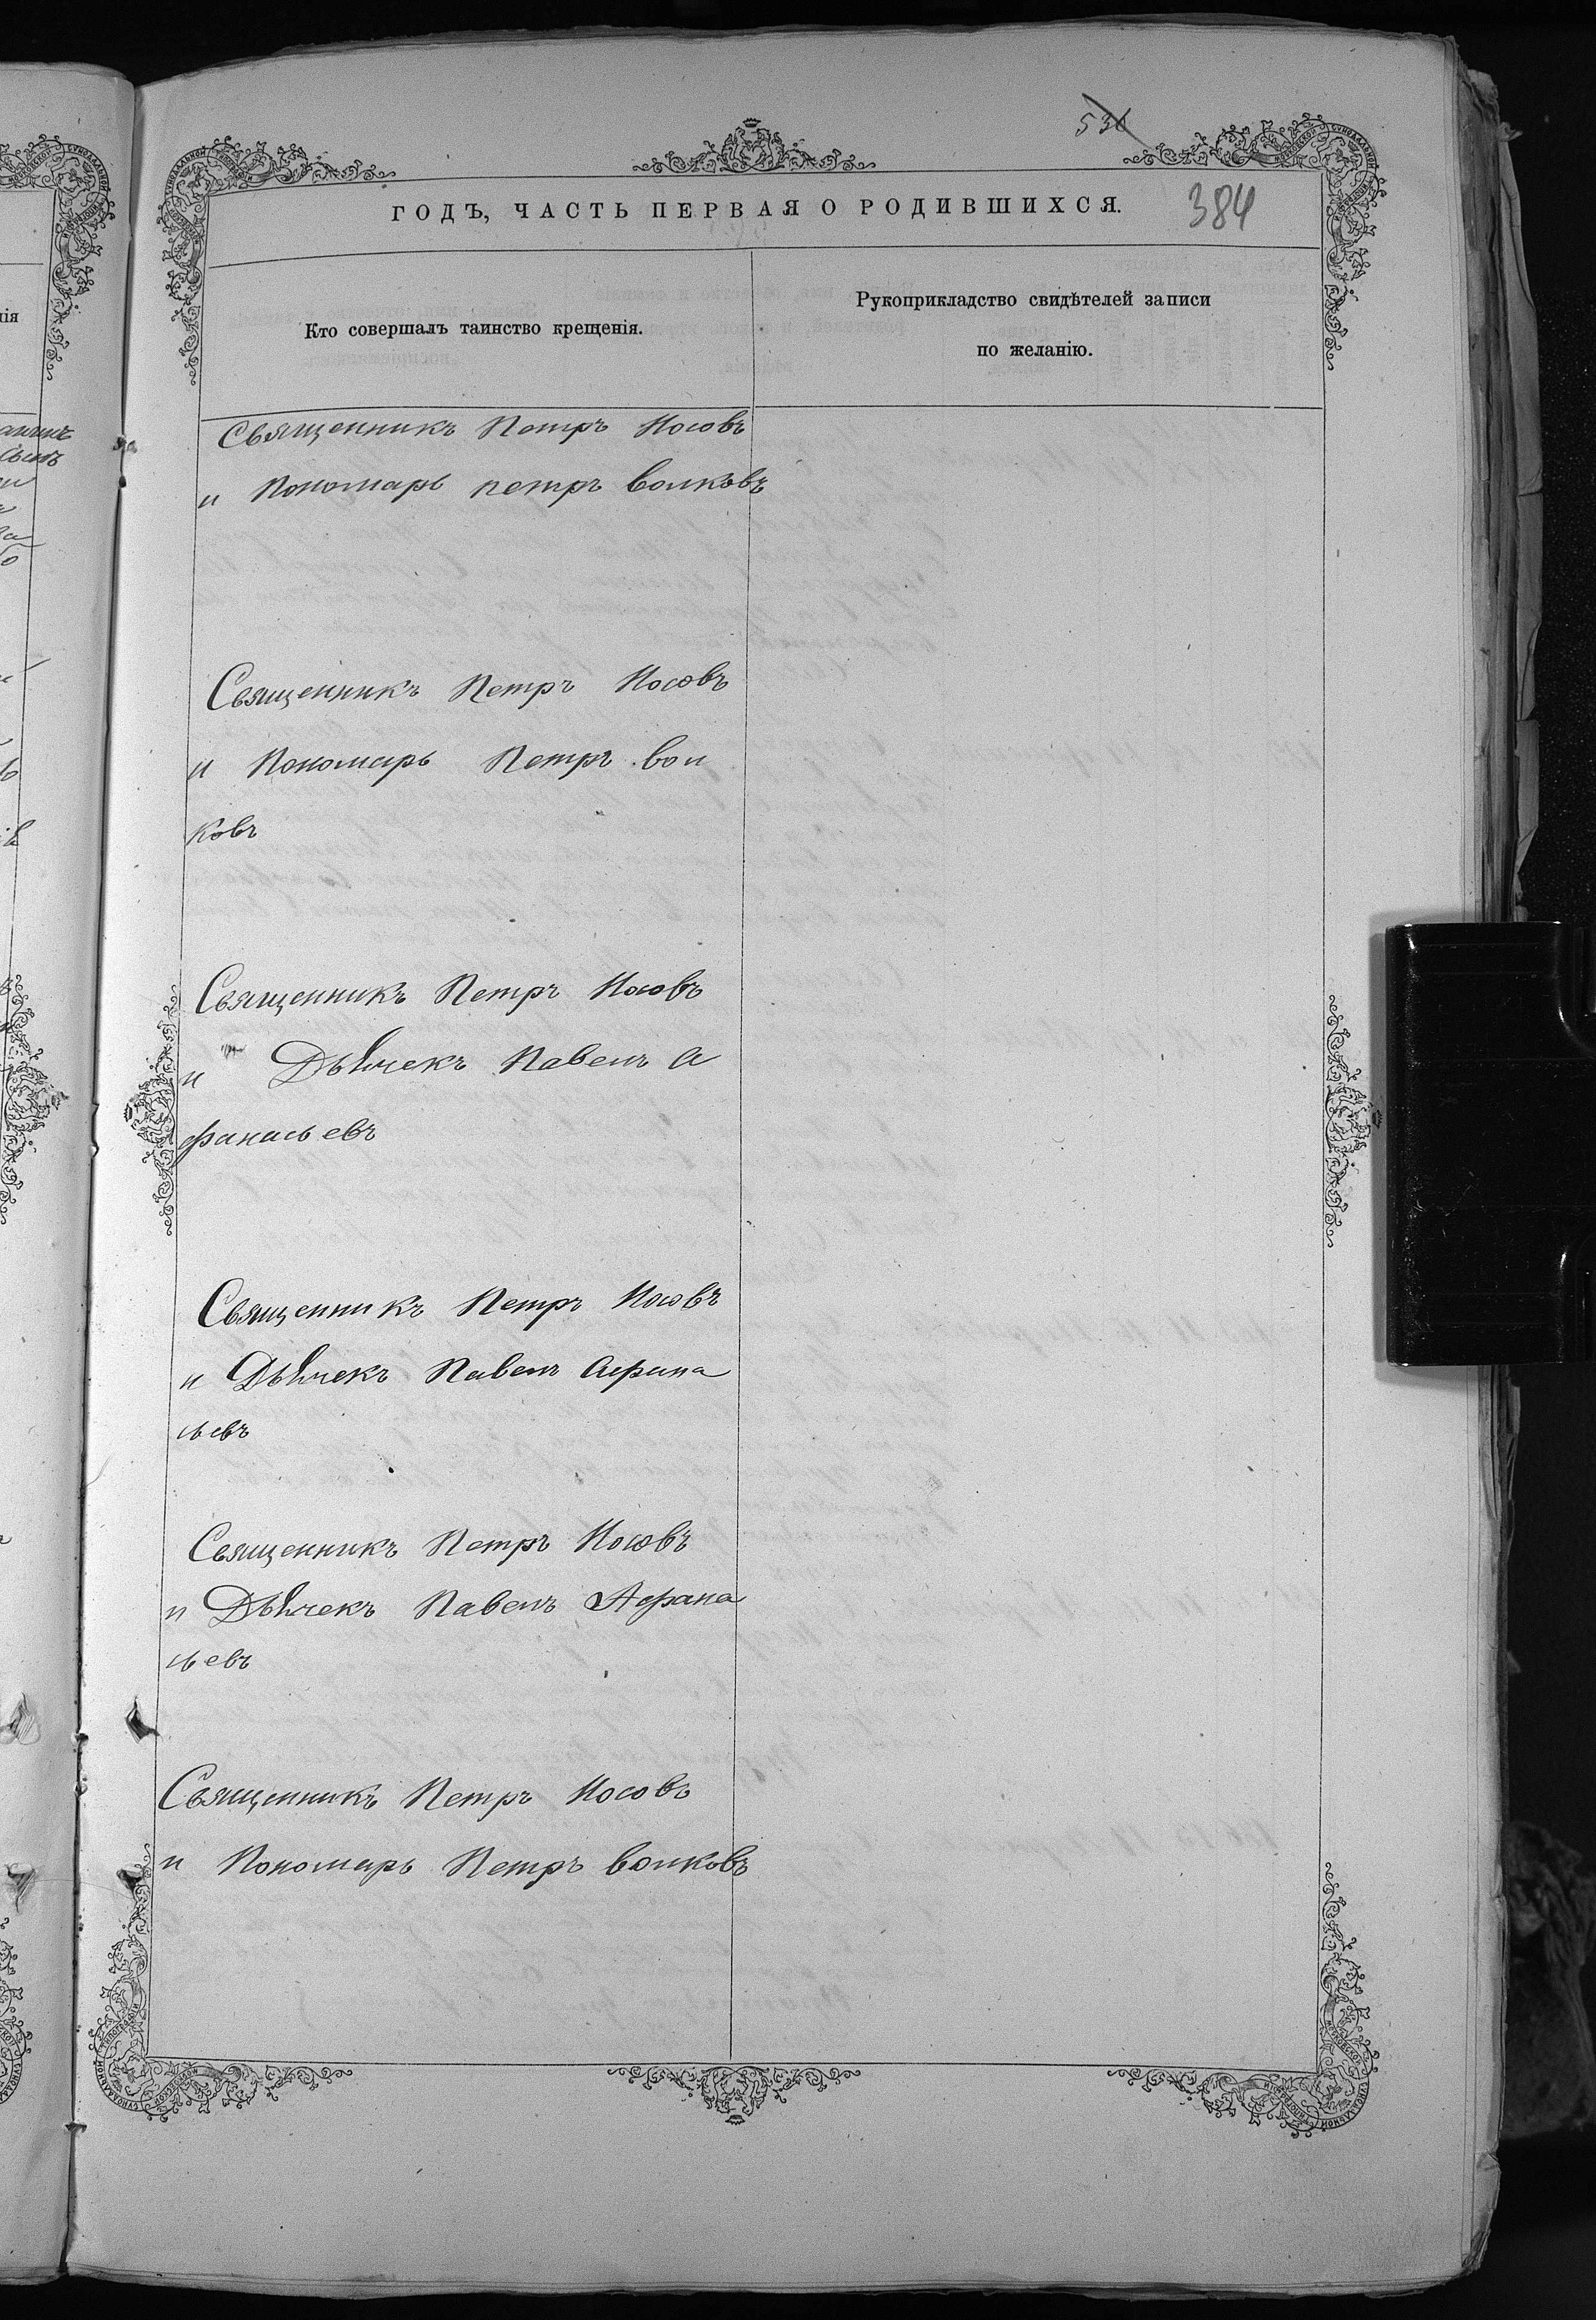 530
384
ГОДЪ, ЧАСТЬ ПЕРВАЯ О РОДИВШИХСЯ.
Кто совершалъ таинство крещенія.
Рукоприкладство свидѣтелей записи
по желанію.
Священникъ Петръ Носовъ
и Пономарь петръ волковъ
Священникъ Петръ Носовъ
и Пономарь Петръ вол
ковъ
Священникъ Петръ Носовъ
и Дьячекъ Павелъ А
фанасьевъ
Священникъ Петръ Носовъ
и Дьячекъ Павелъ Афана
сьевъ
Священникъ Петръ Носовъ
и Дьячекъ Павелъ Афана
сьевъ
Священникъ Петръ Носовъ
и Пономарь Петръ волковъ